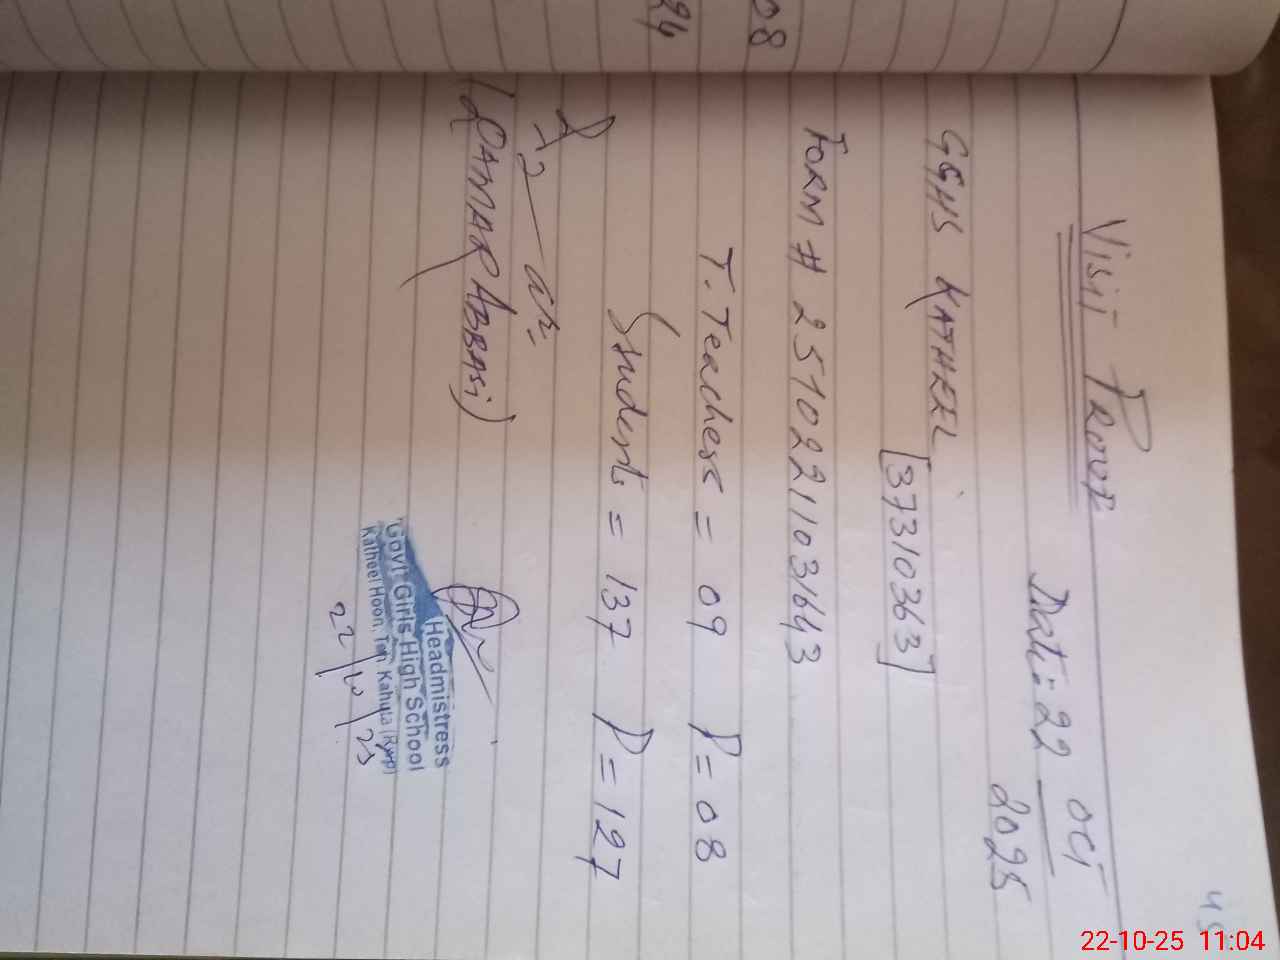 45
Visit Proof
Date:- 22 Oct
2025
GGHS KATHEEL
[37310363]
FORM # 25102211031643
T. Teachess = 09 P = 08
Students = 137 P = 127
(QAMAR ABBASi)
Headmistress
Govt Girls High School
Katheel Hoon. Teh. Kahuta (Rwp)
22/10/25
08
24
22-10-25 11:04